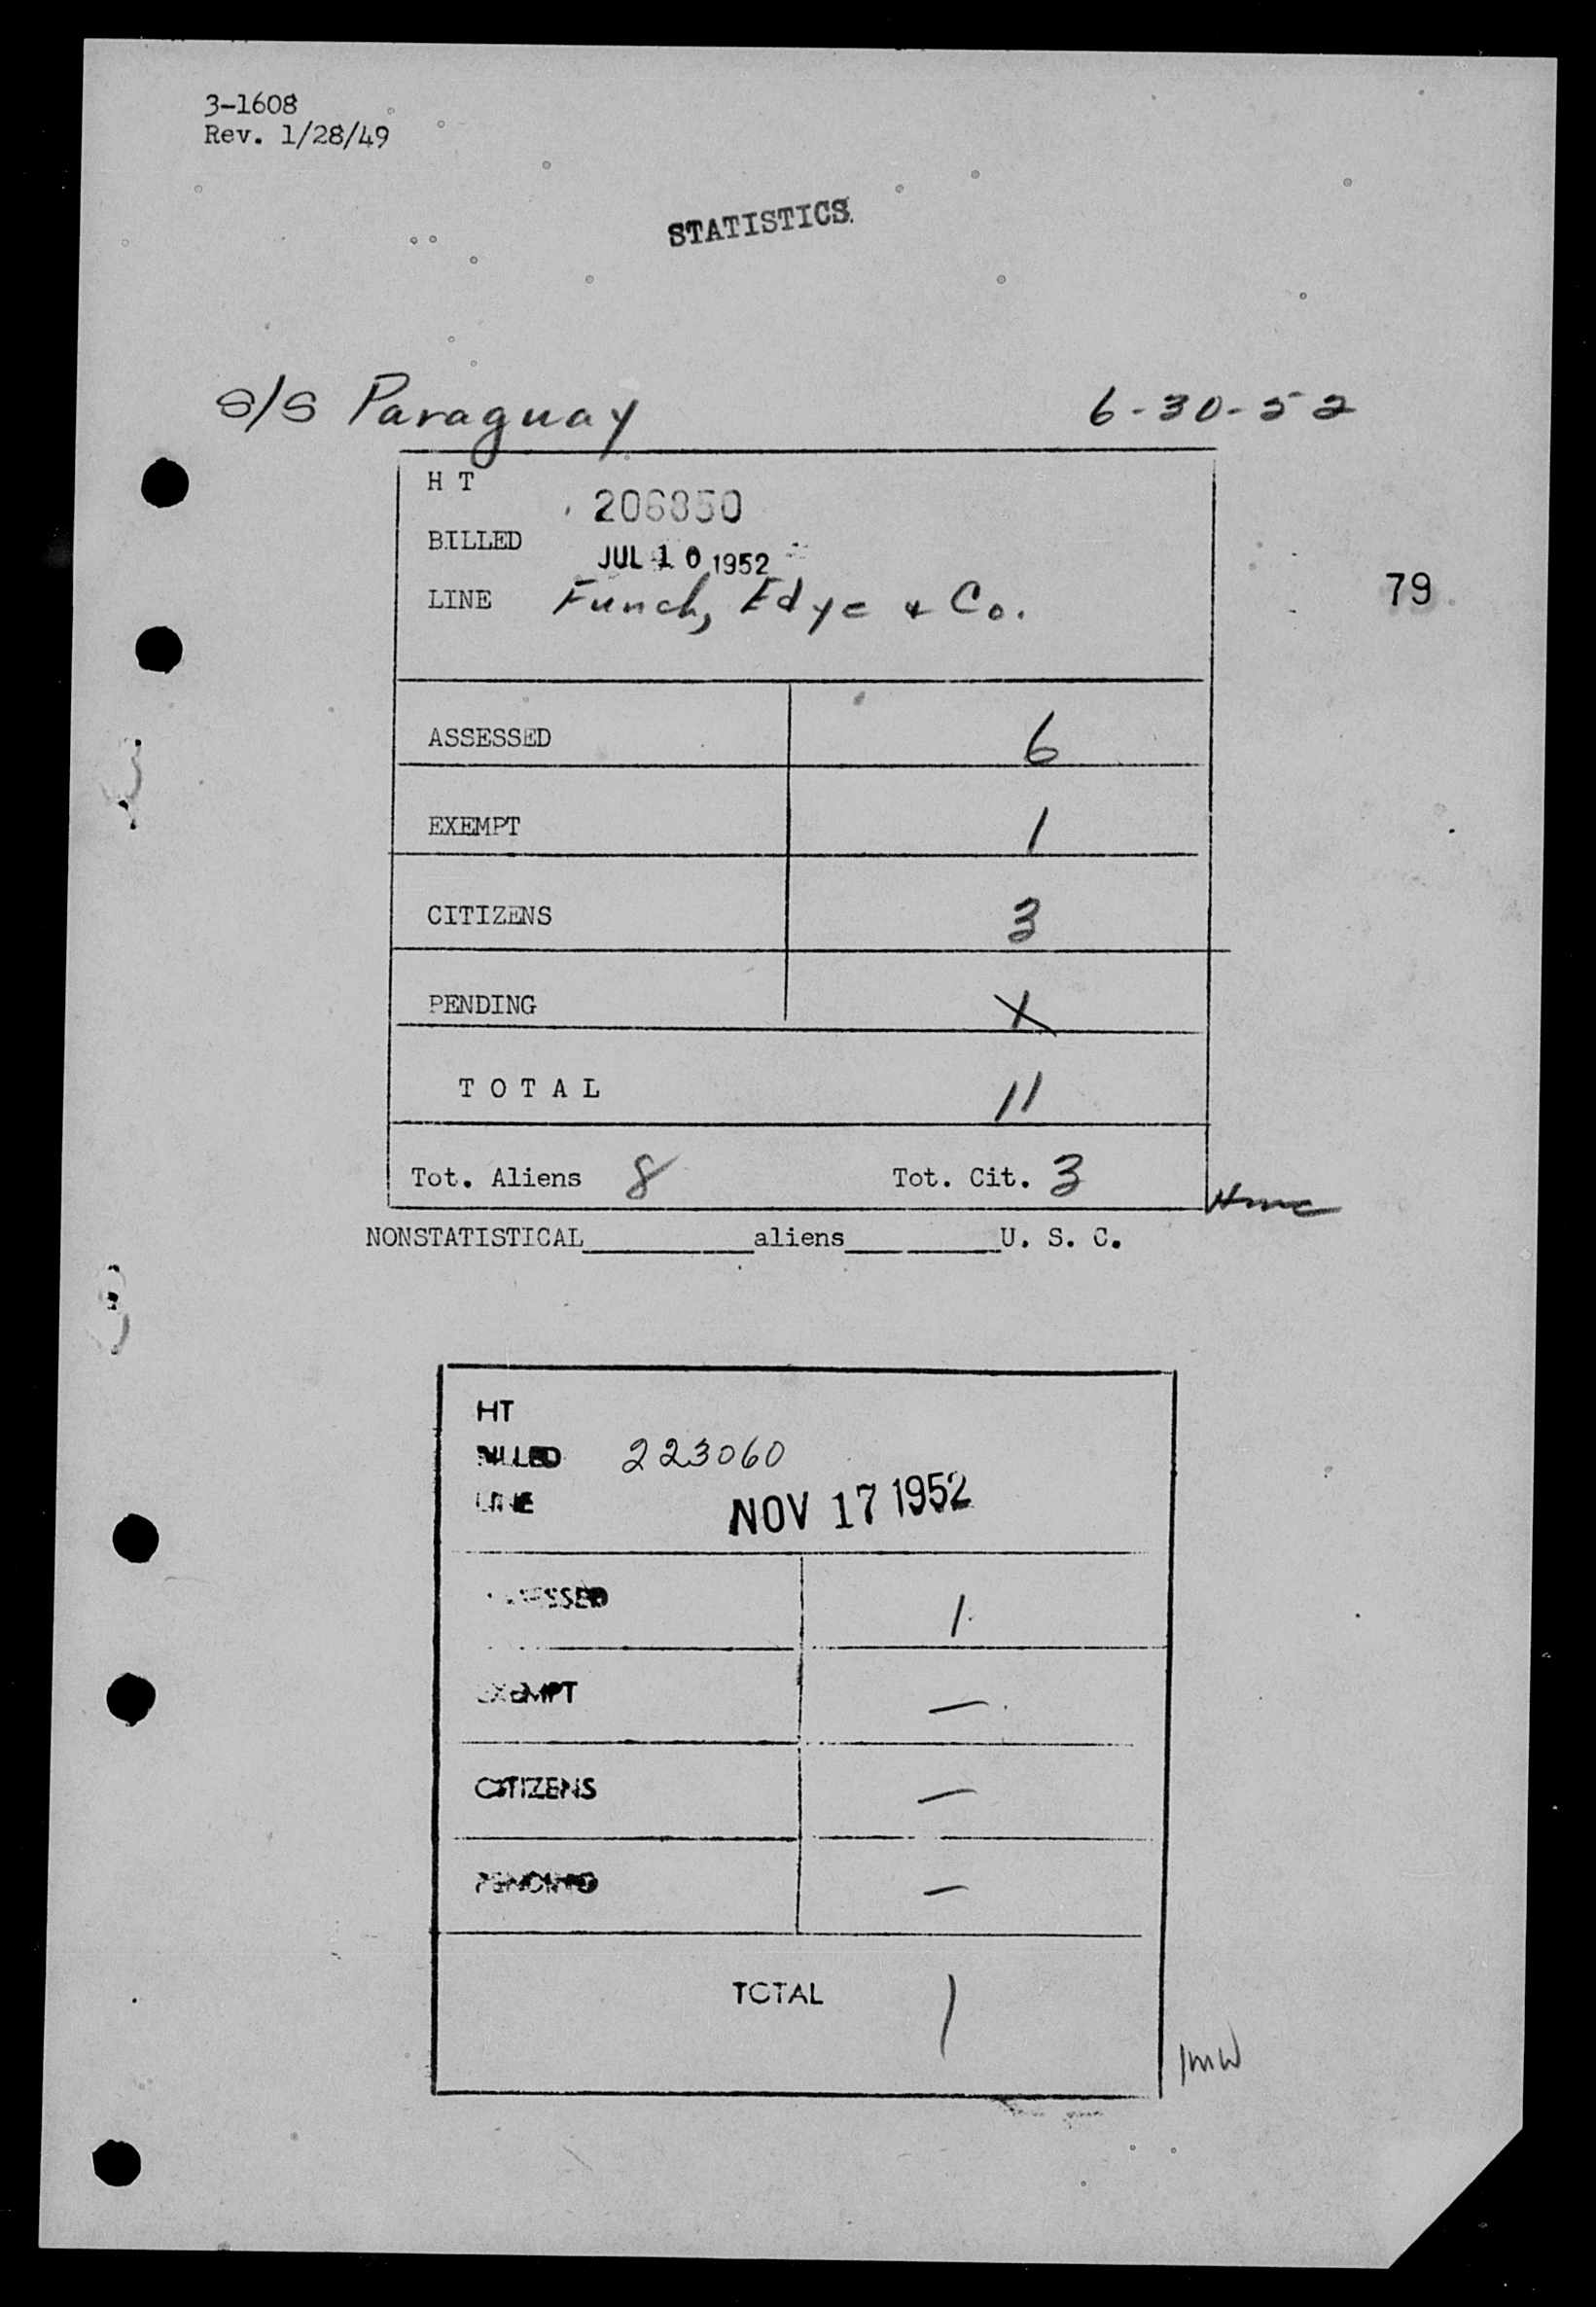 3-1608
Rev. 1/28/49
STATISTICS.
S/S Paraguay 6-30-52
H T
206850
BILLED
JUL 10 1952
LINE Funch, Edye & Co.
79
ASSESSED 6
EXEMPT 1
CITIZENS 3
PENDING X
T O T A L 11
Tot. Aliens 8 Tot. Cit. 3
NONSTATISTICAL aliens U. S. C.
HT
BILLED 223060
LINE
NOV 17 1952
ASSESSED 1
EXEMPT —
CITIZENS —
PENDING —
TOTAL 1